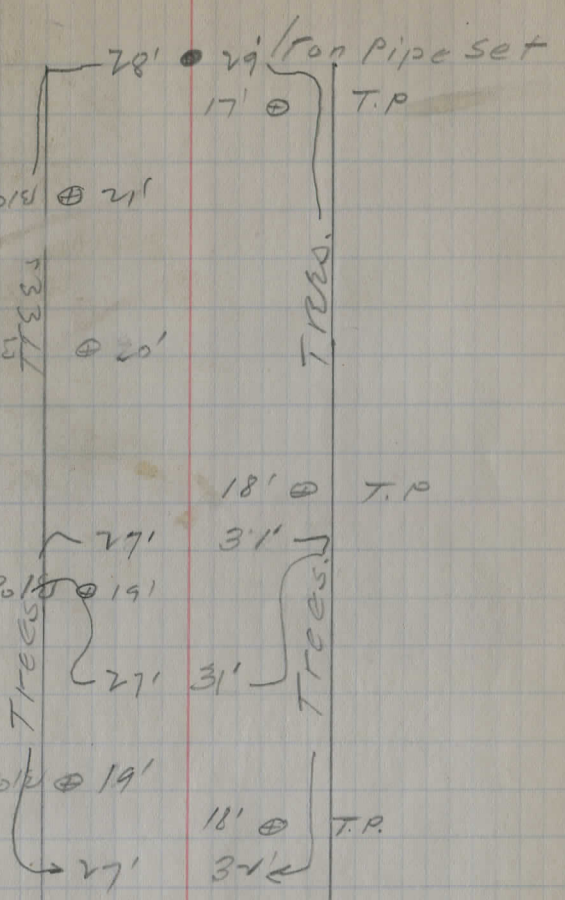 28' 29' Iron Pipe Set
17' T.P
21'
Trees
Trees.
20'
18' T.P
27' 31'
19'
Trees
Trees.
27' 31'
19'
18' T.P.
27' 32'